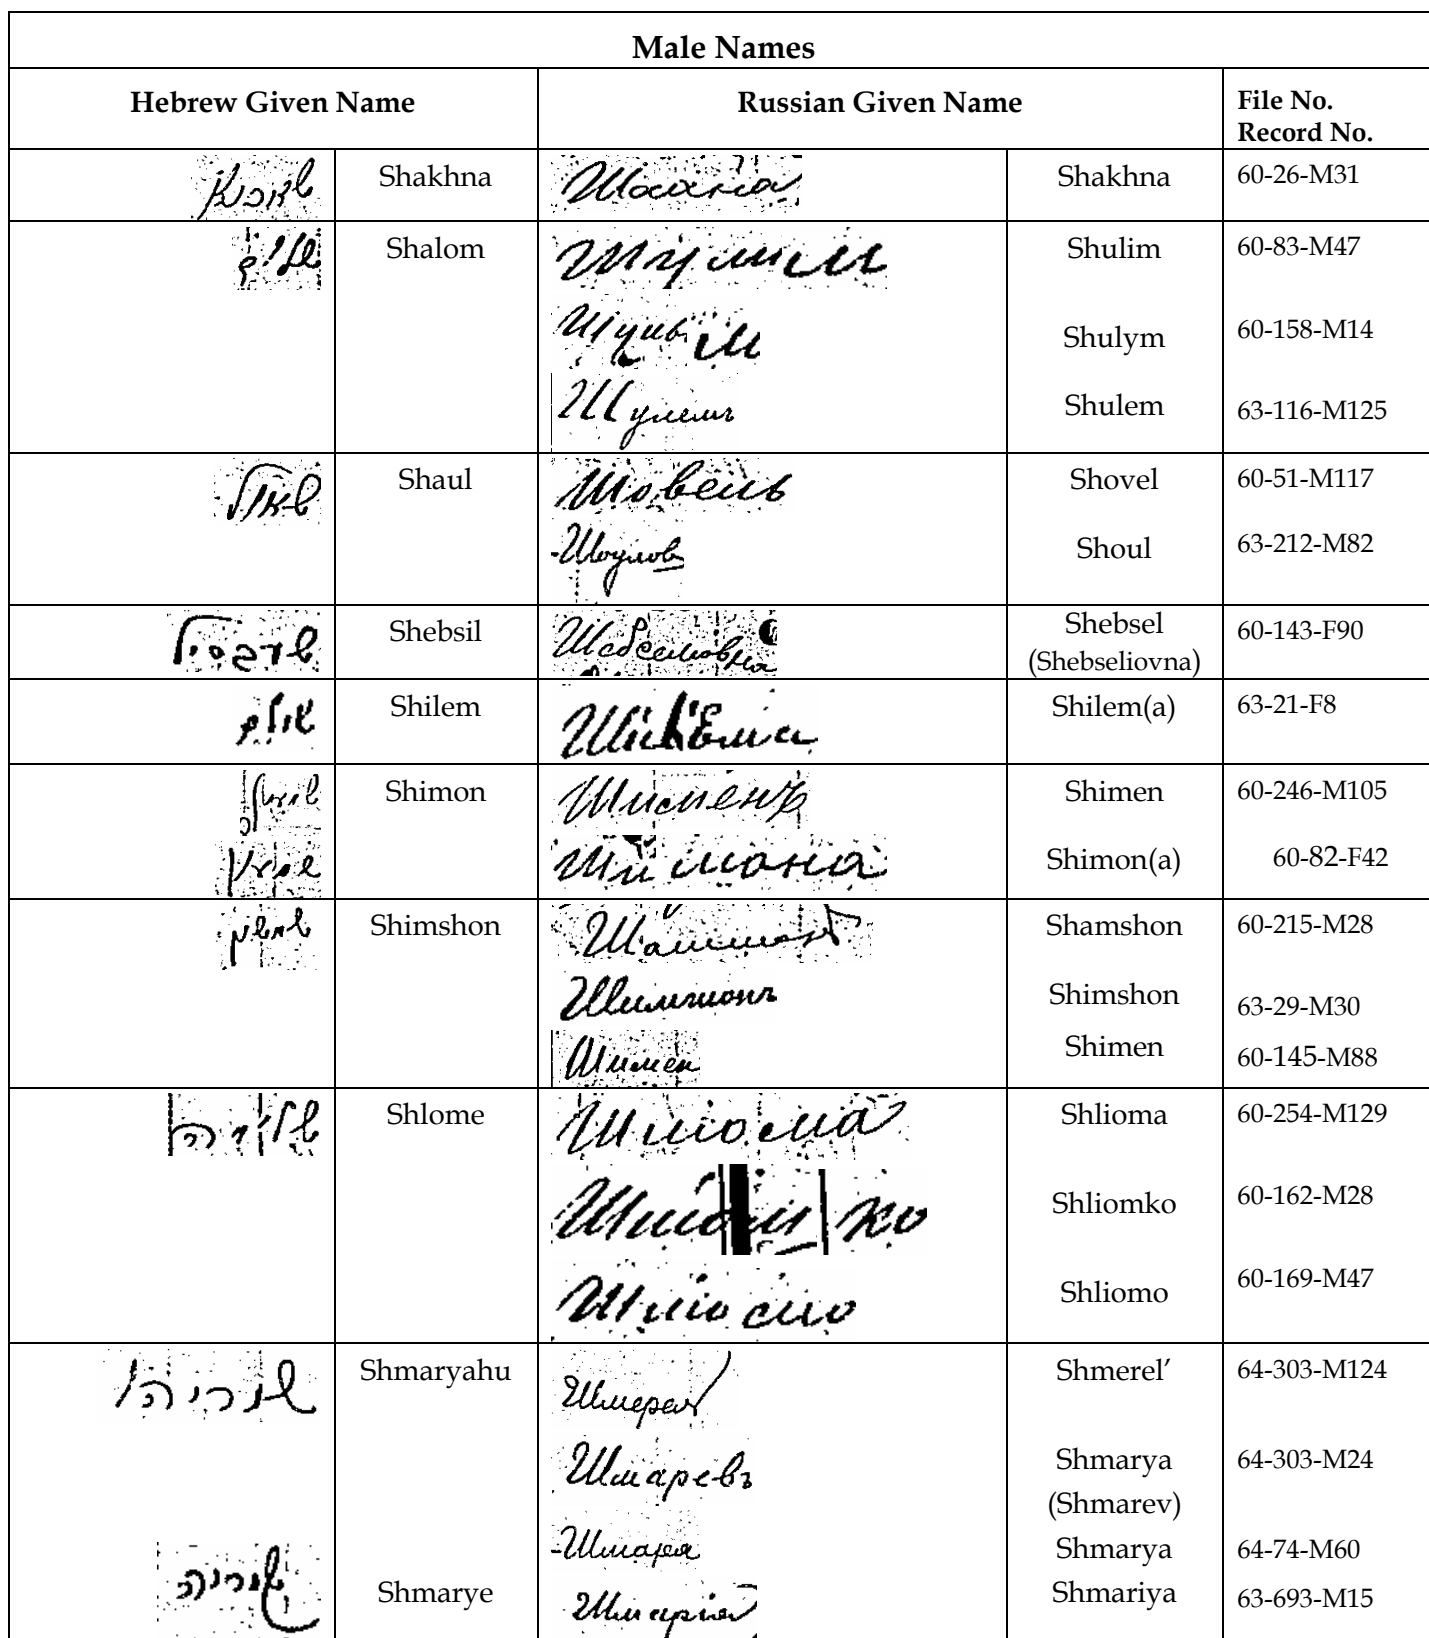 Male Names
Hebrew Given Name Russian Given Name File No. Record No.
שאכנא Shakhna Шахна Shakhna 60-26-M31
שלום Shalom Шулим Shulim 60-83-M47
Shulym 60-158-M14
Шулемъ Shulem 63-116-M125
שאול Shaul Шовель Shovel 60-51-M117
Shoul 63-212-M82
Shebsil Shebsel (Shebseliovna) 60-143-F90
Shilem Shilem(a) 63-21-F8
Shimon Шименъ Shimen 60-246-M105
Шимона Shimon(a) 60-82-F42
שמשון Shimshon Shamshon 60-215-M28
Шимшонъ Shimshon 63-29-M30
Шимен Shimen 60-145-M88
שלומה Shlome Шлиома Shlioma 60-254-M129
Шлиомко Shliomko 60-162-M28
Шлиомо Shliomo 60-169-M47
שמריהו Shmaryahu Shmerel’ 64-303-M124
Шмаревъ Shmarya (Shmarev) 64-303-M24
Шмаря Shmarya 64-74-M60
שמריה Shmarye Шмарія Shmariya 63-693-M15